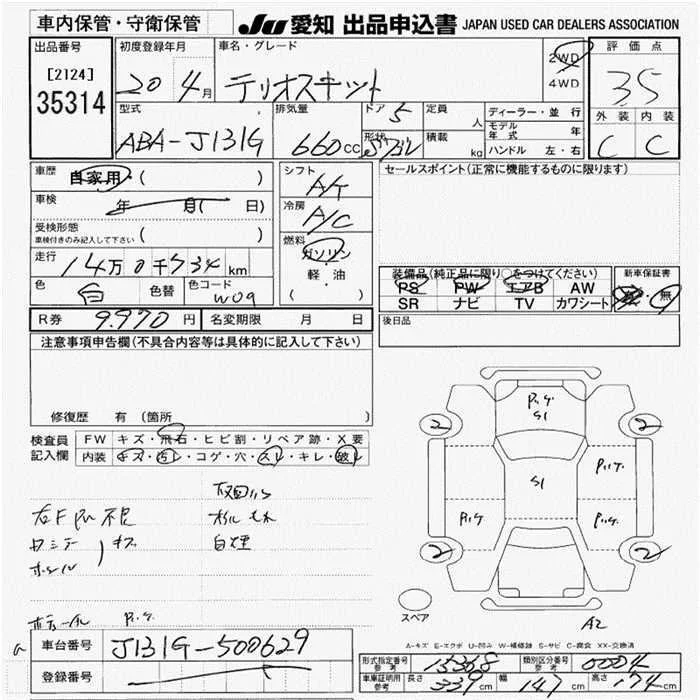 車内保管・守衛保管
JU 愛知 出品申込書 JAPAN USED CAR DEALERS ASSOCIATION
出品番号
[2124]
35314
初度登録年月
20 4月
車名・グレード
テリオスキッド
2WD
4WD
評価点
3.5
外装 内装
C C
型式
ABA-J131G
排気量
660cc
ドア 5
形状 5ドア
定員 人
積載 kg
ディーラー・並行
モデル年式 年
ハンドル 左・右
車歴 自家用・( )
車検 年 月( 日)
受検形態
車検付きのみ記入して下さい ( )
走行 14万0千734km
色 白 色替 色コード W09
シフト A/T
冷房 A/C
燃料 ガソリン
軽・油
( )
セールスポイント(正常に機能するものに限ります)
装備品(純正品に限り○をつけてください)
PS PW エアB AW
SR ナビ TV カワシート
新車保証書
有・無
R券 9.970円 名変期限 月 日
後日品
注意事項申告欄(不具合内容等は具体的に記入して下さい)
修復歴 有 (箇所 )
検査員記入欄
FW キズ・飛石・ヒビ割・リペア跡・X要
内装 キズ・汚レ・コゲ・穴・スレ・キレ・破レ
右F PW 不良
白煙
P.リケ
S1
S1
P.リケ
P.リケ
P.リケ
2 2
2 2
スペア
A2
A-キズ E-エクボ U-凹み W-補修跡 S-サビ C-腐食 XX-交換済
a
車台番号 J131G-500629
登録番号
形式指定番号 参考 15368 類別区分番号 参考 0004
車庫証明用 参考 長さ 339cm 幅 147cm 高さ 174cm